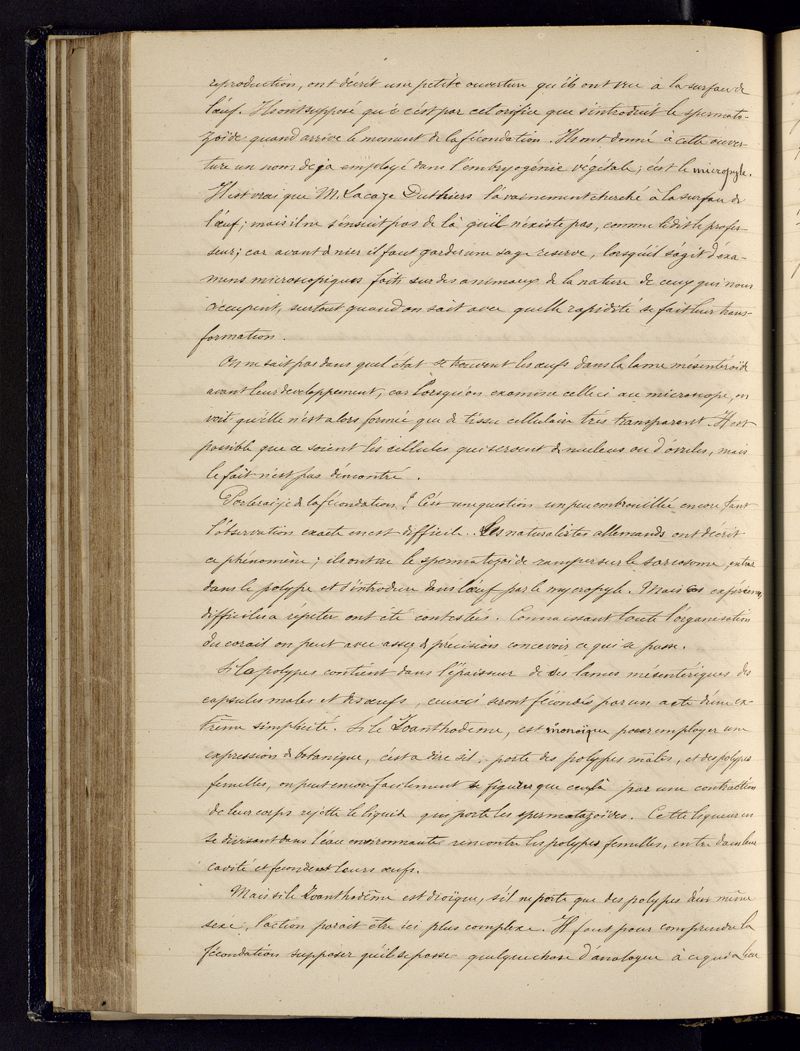 reproduction, ont décrit une petite ouverture qu'ils ont vue à la surface de
l'œuf. Ils ont supposé que c'est par cet orifice que s'introduit le spermato-
zoïde quand arrive le moment de la fécondation. Ils ont donné à cette ouver-
ture un nom deja employé dans l'embryogénie végétale; c'est le micropyle.
Il est vrai que M. Lacaze Duthiers l'a vainement cherché à la surface de
l'œuf; mais il ne s'ensuit pas de là qu'il n'existe pas, comme le dit le profes-
seur; car avant de nier il faut garder une sage reserve, lorsqu'il s'agit d'exa-
mens microscopiques faits sur des animaux de la nature de ceux qui nous
occupent, surtout quand on sait avec quelle rapidité se fait leur trans-
formation.
On ne sait pas dans quel état se trouvent les œufs dans la lame mésentéroïde
avant leur developpement, car lorsqu'on examine celle ci au microscope, on
voit qu'elle n'est alors formée que de tissu cellulaire très transparent. Il est
possible que ce soient les cellules qui servent de nucleus ou d'ovules, mais
le fait n'est pas démontré.
Parlerai-je de la fécondation? C'est une question un peu embrouillée encore, tant
l'observation exacte en est difficile. Les naturalistes allemands ont décrit
ce phénomène; ils ont vu le spermatozoïde ramper sur le sarcosome, entrer
dans le polype et s'introduire dans l'œuf par le mycropyle. Mais ces expériences,
difficiles a répéter ont été contestées. Connaissant toute l'organisation
du corail on peut avec assez de précision concevoir ce qui se passe.
Si le polypes contient dans l'épaisseur de ses lames mésentériques des
capsules males et des œufs, ceux ci seront fécondés par un acte d'une ex-
trême simplicité. Si le Zoanthodeme, est monoïque pour employer une
expression de botanique, c'est a dire s'il porte des polypes mâles, et des polypes
femelles, on peut encore facilement se figurer que ceux là par une contraction
de leur corps rejette le liquide qui porte les spermatozoïdes. Cette liqueur en
se divisant dans l'eau environnante rencontre les polypes femelles, entre dans leur
cavité et fécondent leurs œufs.
Mais si le Zoanthodème est dioïque, s'il ne porte que des polypes d'un même
sexe, l'action parait être ici plus complexe. Il faut pour comprendre la
fécondation supposer qu'il se passe quelque chose d'analogue à ce qui a lieu